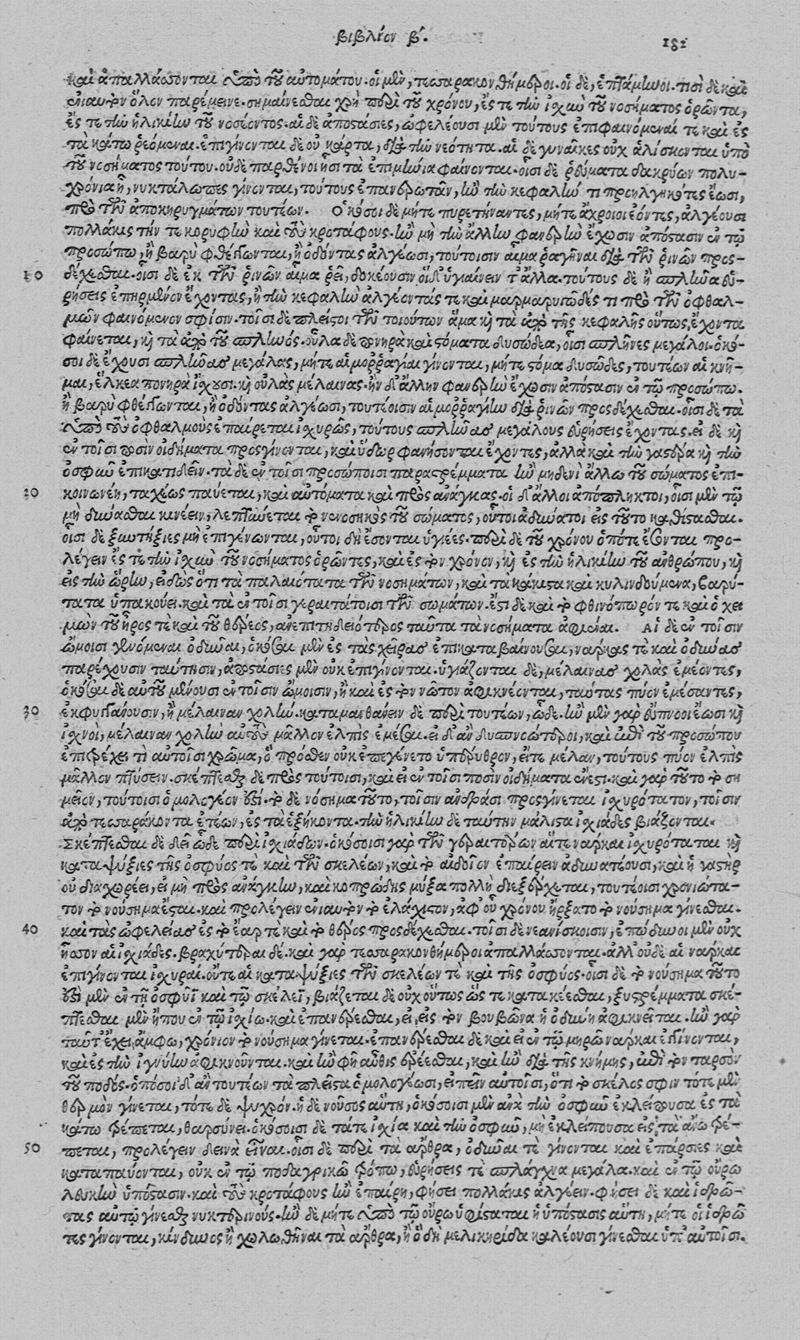 βιβλίον β΄. 181
καὶ ἀπαλλάσσονται ὑπὸ τοῦ αὐτομάτου. οἱ μὲν, τεσσαρακονθήμεροι. οἱ δὲ, ἑπτάμηνοι. τισὶ δὲ καὶ
ἐνιαυτὸν ὅλον παρέμεινε. σημαίνεσθαι χρὴ περὶ τοῦ χρόνου, ἔς τε τὴν ἰσχὺν τοῦ νοσήματος ὁρῶντα,
ἔς τε τὴν ἡλικίην τοῦ νοσέοντος. αἱ δὲ ἀποστάσιες, ὠφελέουσι μὲν τούτους ἐπιφαινόμεναί τε καὶ ἐς
τὰ κάτω ῥεόμεναι. ἐπιγίνονται δὲ οὐ κάρτα, διὰ τὴν νεότητα. αἱ δὲ γυναῖκες οὐχ ἁλίσκονται ὑπὸ
τοῦ νοσήματος τούτου. οὐδὲ παρθένοι ᾗσι τὰ ἐπιμήνια φαίνονται. οἷσι δὲ ῥεύματα δακρύων πολυ-
χρόνια ἢ, νυκτάλωπες γίνονται, τούτους ἐπανερωτᾶν, ἢν τὴν κεφαλήν τι προηλγηκότες ἔωσι,
πρὸ τῶν ἀποσκηρυγμάτων τουτέων. Ὁκόσοι δὲ μήτε πυρετήναντες, μήτε ἄχροιοι ἐόντες, ἀλγέουσι
πολλάκις τήν τε κορυφὴν καὶ τοὺς κροτάφους. ἢν μή τιν ἄλλην φανερὴν ἔχωσιν ἀπόστασιν ἐν τῷ
προσώπῳ, ἢ βαρὺ φθέγγωνται, ἢ ὀδόντας ἀλγέωσι, τούτοισιν αἷμα ῥαγῆναι διὰ τῶν ῥινῶν προσ-
10 δέχεσθαι. οἷσι δὲ ἐκ τῶν ῥινῶν αἷμα ῥεῖ, δοκέουσιν οἵδε ὑγιαίνειν τἄλλα. τούτους δὲ ἢ σπλῆνα εὑ-
ρήσεις ἐπηρμένον ἔχοντας, ἢ τὴν κεφαλὴν ἀλγέοντάς τε καὶ μαρμαρυγῶδές τι πρὸ τῶν ὀφθαλ-
μῶν φαινόμενον σφίσιν. τοῖσι δὲ πλείστοις τῶν τοιούτων ἅμα κὴ τὰ ἀπὸ τῆς κεφαλῆς οὕτως ἔχοντα
φαίνεται, κὴ τὰ ἀπὸ τοῦ σπληνός. οὖλα δὲ πονηρὰ καὶ στόματα δυσώδεα, οἷσι σπλῆνες μεγάλοι. ὁκό-
σοι δὲ ἔχουσι σπλῆνας μεγάλας, μήτε αἱμορραγίαι γίνονται, μήτε στόμα δυσῶδες, τουτέων αἱ κνῆ-
μαι, ἕλκεα πονηρὰ ἴσχουσι. κὴ οὐλὰς μέλαινας. ἢν δ' ἄλλην φανερὴν ἔχωσιν ἀπόστασιν ἐν τῷ προσώπῳ.
ἢ βαρὺ φθέγγωνται, ἢ ὀδόντας ἀλγέωσι, τουτέοισιν αἱμορραγίην διὰ ῥινῶν προσδέχεσθαι. οἷσι δὲ τὰ
ὑπὸ τοὺς ὀφθαλμοὺς ἐπαίρεται ἰσχυρῶς, τούτους σπλῆνας μεγάλους εὑρήσεις ἔχοντας. εἰ δὲ κὴ
ἐν τοῖσι ποσὶν οἰδήματα προσγίνονται, καὶ ὕδωρ φανήσονται ἔχοντες, ἀλλὰ καὶ τὴν γαστέρα κὴ τὴν
ὀσφὺν ἐπικατιδεῖν. τὰ δὲ ἐν τοῖσι προσώποισι παραστρέμματα ἢν μηδενὶ ἄλλῳ τοῦ σώματος ἐπι-
20 κοινωνέῃ, ταχέως παύεται, καὶ αὐτόματα καὶ πρὸς ἀνάγκας. οἱ δ' ἄλλοι ἀπόπληκτοι, οἷσι μὲν τῷ
μὴ δύνασθαι κινέειν, λεπτύνεται τὸ νενοσηκὸς τοῦ σώματος, οὗτοι ἀδύνατοι εἰς τοῦτο καθίστασθαι.
οἷσι δὲ ξυντήξιες μὴ ἐπιγίνωνται, οὗτοι δὴ ἔσονται ὑγιέες. περὶ δὲ τοῦ χρόνου ὁπότε ἔσονται προ-
λέγειν ἔς τε τὴν ἰσχὺν τοῦ νοσήματος ὁρῶντες, καὶ ἐς τὸν χρόνον, κὴ ἐς τὴν ἡλικίην τοῦ ἀνθρώπου, κὴ
εἰς τὴν ὥρην, εἰδὼς ὅτι τὰ παλαιότατα τῶν νοσημάτων, καὶ τὰ κάκιστα καὶ κυλινδούμενα, βραδύ-
τατα ὑπακούει. καὶ τὰ ἐν τοῖσι γεραιτάτοισι τῶν σωμάτων. ἔτι δὲ καὶ τὸ φθινόπωρόν τε καὶ ὁ χει
μὼν τοῦ ἦρός τε καὶ τοῦ θέρεος, ἀνεπιτηδειότερος ταῦτα τὰ νοσήματα ἀφιέναι. Αἱ δὲ ἐν τοῖσιν
ὤμοισι γενόμεναι ὀδύναι, ὁκόσαι μὲν ἐς τὰς χεῖρας ἐπικαταβαίνουσαι, νάρκας τε καὶ ὀδύνας
παρέχουσιν ταύτῃσιν, ἀποστάσιες μὲν οὐκ ἐπιγίνονται. ὑγιάζονται δὲ, μέλαινας χολὰς ἐμέοντες,
ὁκόσαι δὲ αὐτοῦ μένουσι ἐν τοῖσιν ὤμοισιν, ἢ καὶ ἐς τὸν νῶτον ἀφικνέονται, ταύτας πύον ἐμέσαντες,
30 ἐκφυγγάνουσιν, ἢ μέλαιναν χολήν. καταμανθάνειν δὲ περὶ τουτέων, ὧδε. ἢν μὲν γὰρ εὔπνοοι ἔωσι κὴ
ἰσχνοὶ, μέλαιναν χολὴν αὐτοὺς μᾶλλον ἐλπὶς ἐμέσαι. εἰ δ' ἂν δυσπνοώτεροι, καὶ ἐπὶ τοῦ προσώπου
ἐπιτρέχει τι αὐτοῖσι χρῶμα, ὃ πρόσθεν οὐκ ἐπεγένετο ὑπέρυθρον, εἴτε μέλαν, τούτους πύον ἐλπὶς
μᾶλλον πτύσειν. σκέπτεσθαι δὲ πρὸς τούτοισι, καὶ εἰ ἐν τοῖσι ποσὶν οἰδήματα ἔνεστι. καὶ γὰρ τοῦτο τὸ ση
μεῖον, τούτοισι ὁμολογέον ἐστί. τὸ δὲ νόσημα τοῦτο, τοῖσιν ἀνδράσι προσγίνεται ἰσχυρότατον, τοῖσιν
ἀπὸ τεσσαράκοντα ἐτέων, ἐς τὰ ἑξήκοντα. τὴν ἡλικίην δὲ ταύτην μάλιστα ἰσχιάδες βιάζονται.
Σκέπτεσθαι δὲ δεῖ ὧδε περὶ ἰσχιάδων. ὁκόσοισι γὰρ τῶν γεραιτέρων αἵ τε νάρκαι ἰσχυρόταται κὴ
καταψύξιες τῆς ὀσφύος τε καὶ τῶν σκελέων, καὶ τὸ αἰδοῖον ἐπαίρειν ἀδυνατέουσι, καὶ ἡ γαστὴρ
οὐ διαχωρέει, εἰ μὴ πρὸς ἀνάγκην, καὶ κοπρώδης μύξα πολλὴ διεξέρχεται, τουτέοισι χρονιώτα-
τον τὸ νούσημα ἔσται. καὶ προλέγειν ἐνιαυτὸν τὸ ἐλάχιστον, ἀφ' οὗ χρόνου ἤρξατο τὸ νούσημα γίνεσθαι.
40 καὶ τὰς ὠφελείας ἐς τὸ ἔαρ τε καὶ τὸ θέρος προσδέχεσθαι. τοῖσι δὲ νεανίσκοισιν, ἐπώδυνοι μὲν οὐχ
ἧσσον αἱ ἰσχιάδες. βραχύτεραι δέ. καὶ γὰρ τεσσαρακονθήμεροι ἀπαλλάσσονται. ἀλλ' οὐδὲ αἱ νάρκαι
ἐπιγίνονται ἰσχυραί. οὔτε αἱ καταψύξιες τῶν σκελέων τε καὶ τῆς ὀσφύος. οἷσι δὲ τὸ νούσημα τοῦτο
ἐστὶ μὲν ἐν τῇ ὀσφύϊ καὶ τῷ σκέλεϊ, βιάζεται δὲ οὐχ οὕτως ὥς τε κατακέεσθαι, ξυστρέμματα σκέ-
πτεσθαι μὲν ἤπου ἐν τῷ ἰσχίῳ. καὶ ἐπανερέεσθαι, εἰ, εἰς τὸν βουβῶνα ἡ ὀδύνη ἀφικνεῖται. ἢν γὰρ
ταῦτ' ἔχει ἄμφω, χρόνιον τὸ νούσημα γίνεται. ἐπανερέεσθαι δὲ καὶ εἰ ἐν τῷ μηρῷ νάρκαι ἐγγίνονται,
καὶ ἐς τὴν ἰγνύην ἀφικνοῦνται. καὶ ἢν φῇ αὖθις ἐρέεσθαι, καὶ ἢν διὰ τῆς κνήμης, ἐπὶ τὸν ταρσὸν
τοῦ ποδός. ὁπόσοι δ' ἂν τουτέων τὰ πλεῖστα ὁμολογέωσι, εἰπεῖν αὐτοῖσι, ὅτι τὸ σκέλος σφιν τότε μὲν
θερμὸν γίνεται, τότε δὲ ψυχρόν. ἡ δὲ νοῦσος αὕτη, ὁκόσοισι μὲν ἀνὰ τὴν ὀσφὺν ἐκλείπουσα ἐς τὰ
κάτω τρέπεται, θαρσύνει. ὁκόσοισι δὲ τά τε ἰσχία καὶ τὴν ὀσφὺν, μὴ ἐκλείπουσα εἰς τὰ ἄνω τρέ-
50 πεται, προλέγειν δεινὰ εἶναι. οἷσι δὲ περὶ τὰ ἄρθρα, ὀδύναι τε γίνονται καὶ ἐπάρσιες καὶ
καταπαύονται, οὐκ ἐν τῷ ποδαγρικῷ τρόπῳ, εὑρήσεις τὲ σπλάγχνα μεγάλα. καὶ ἐν τῷ οὔρῳ
λευκὴν ὑπόστασιν. καὶ τοὺς κροτάφους ἢν ἐπαίρῃ, φήσει πολλάκις ἀλγέειν. φήσει δὲ καὶ ἱδρῶ-
τας αὐτῷ γίνεσθαι νυκτερινούς. ἢν δὲ μήτε ὑπὸ τῷ οὔρῳ ὑφίσταται ἡ ὑπόστασις αὕτη, μήτε οἱ ἱδρῶ
τες γίνονται, κίνδυνος ἢ χωλωθῆναι τὰ ἄρθρα, ἢ ὃ δὴ μελικηρίδα καλέουσι γίνεσθαι ὑπ' αὐτοῖσι.